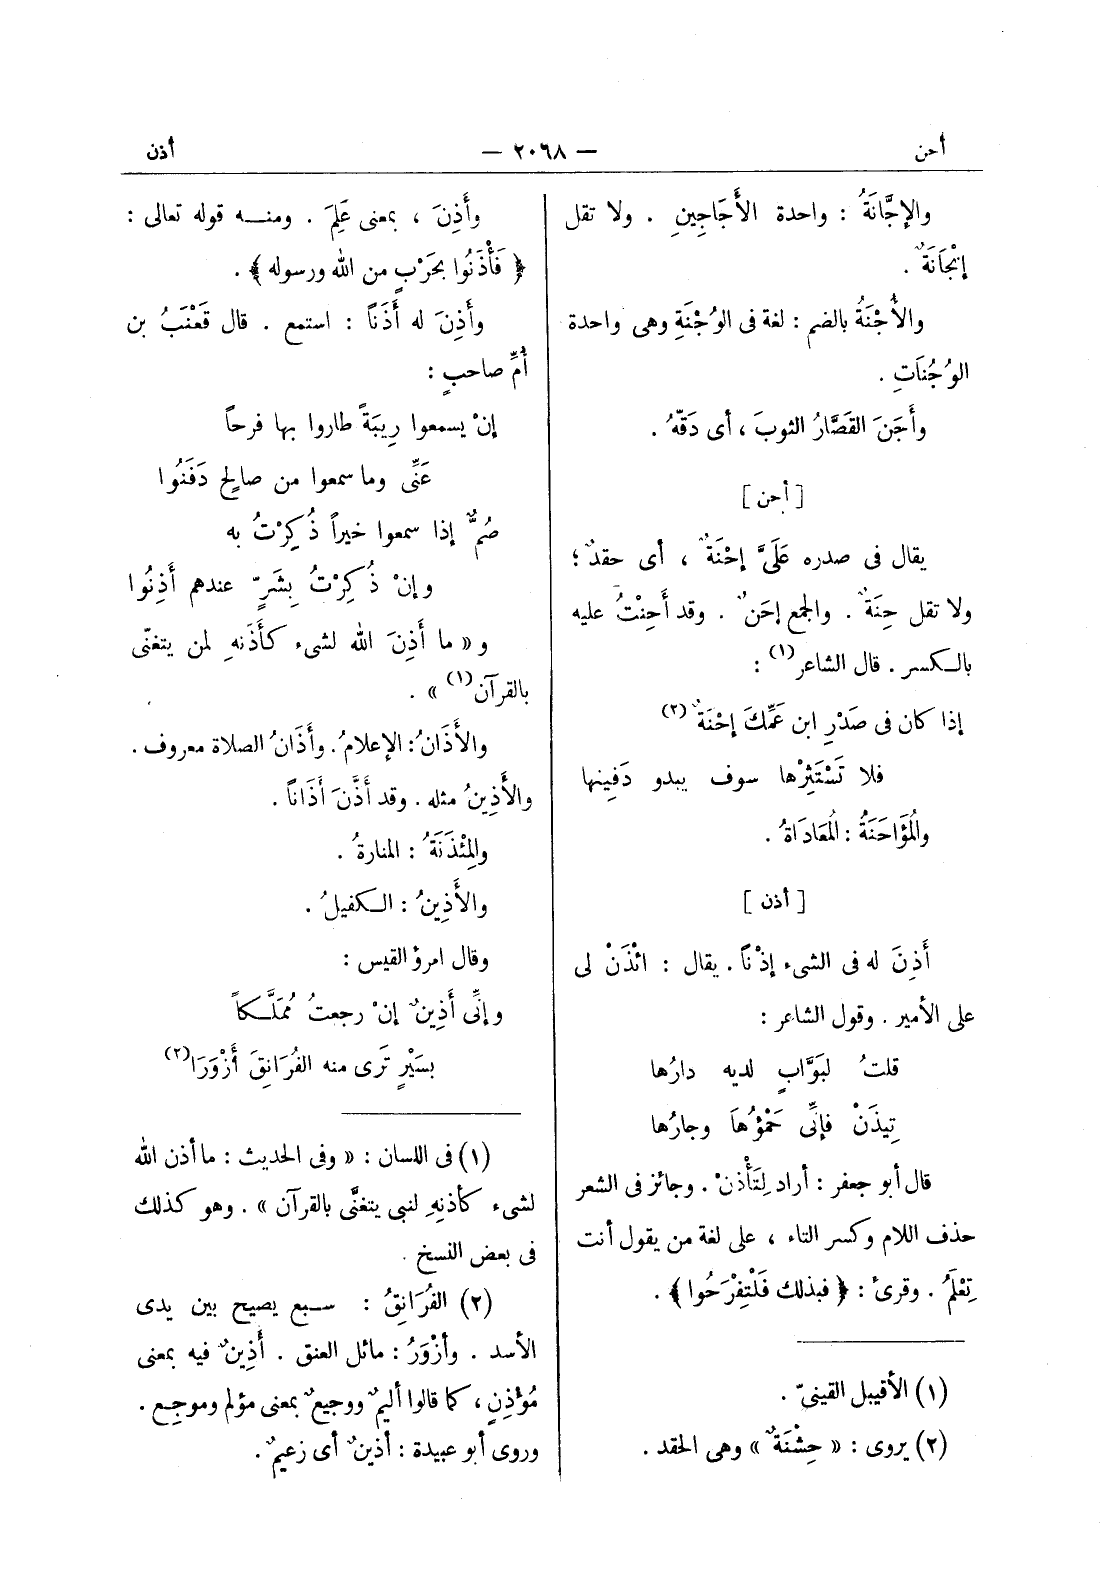 أحن
— ٢٠٦٨ —
أذن
والإجَّانَةُ : واحدة الأَجَاجِينِ . ولا تقل
إنْجَانَةٌ .
والأُجْنَةُ بالضم : لغة فى الوُجْنَةِ وهى واحدة
الوُجُنَاتِ .
وأَجَنَ القَصَّارُ الثوبَ ، أى دَقَّهُ .
[ أحن ]
يقال فى صدره عَلَىَّ إحْنَةٌ ، أى حقدٌ ؛
ولا تقل حِنَةٌ . والجمع إحَنٌ . وقد أَحِنْتُ عليه
بالكسر . قال الشاعر (١) :
إذا كان فى صَدْرِ ابن عَمِّكَ إحْنَةٌ (٢)
فلا تَسْتَثِرْها سوف يبدو دَفِينها
والمُؤَاحَنَةُ : المُعَادَاةُ .
[ أذن ]
أَذِنَ له فى الشىء إذْناً . يقال : ائْذَنْ لى
على الأمير . وقول الشاعر :
قلتُ لبَوَّابٍ لديه دارُها
تِيذَنْ فإنِّى حَمْؤُهَا وجارُها
قال أبو جعفر : أراد لِتَأْذنْ . وجائز فى الشعر
حذف اللام وكسر التاء ، على لغة من يقول أنت
تِعْلَمُ . وقرئ : ﴿ فبذلك فَلْتِفْرَحُوا ﴾ .
(١) الأقيبل القينىّ .
(٢) يروى : « حِشْنَةٌ » وهى الحقد .
وأَذِنَ ، بمعنى عَلِمَ . ومنه قوله تعالى :
﴿ فَأْذَنُوا بحَرْبٍ من الله ورسوله ﴾ .
وأَذِنَ له أَذَناً : استمع . قال قَعْنَبُ بن
أُمِّ صاحبٍ :
إنْ يسمعوا رِيبَةً طاروا بها فرحاً
عَنِّى وما سمعوا من صالحٍ دَفَنُوا
صُمٌّ إذا سمعوا خيراً ذُكِرْتُ به
وإنْ ذُكِرْتُ بِشَرٍّ عندهم أَذِنُوا
و « ما أَذِنَ الله لشىء كَأَذَنهِ لمن يتغنّى
بالقرآن (١) » .
والأَذَانُ : الإعلامُ . وأَذَانُ الصلاة معروف .
والأَذِينُ مثله . وقد أَذَّنَ أَذَاناً .
والمِئْذَنَةُ : المنارةُ .
والأَذِينُ : الكفيلُ .
وقال امرؤ القيس :
وإنِّى أَذِينٌ إنْ رجعتُ مُمَلَّكاً
بسَيْرٍ تَرى منه الفُرَانِقَ أَزْوَرَا (٢)
(١) فى اللسان : « وفى الحديث : ما أذن الله
لشىء كأذنهِ لنبى يتغنَّى بالقرآن » . وهو كذلك
فى بعض النسخ .
(٢) الفُرَانِقُ : سبع يصيح بين يدى
الأسد . وأزْوَرُ : مائل العنق . أَذِينٌ فيه بمعنى
مُؤْذِنٍ ، كما قالوا أليمٌ ووجيعٌ بمعنى مؤلم وموجِع .
وروى أبو عبيدة : أذينٌ أى زعيمٌ .